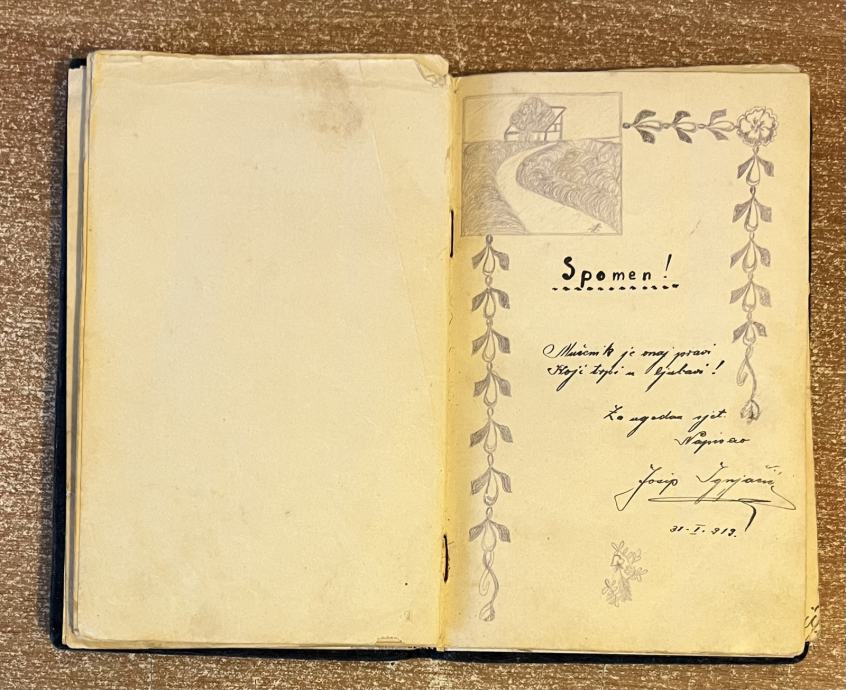 Spomen!
Mučenik je onaj pravi
Koji trpi u ljubavi!
Za ugodan sjet.
Napisao
Josip Ignjačić
31-I-919.